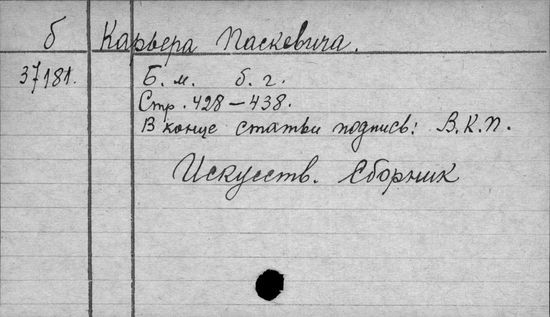 б Карьера Паскевича.
37181. Б. м. б. г.
Стр. 428 – 438.
В конце статьи подпись: В.К.П.
Искусств. Сборник